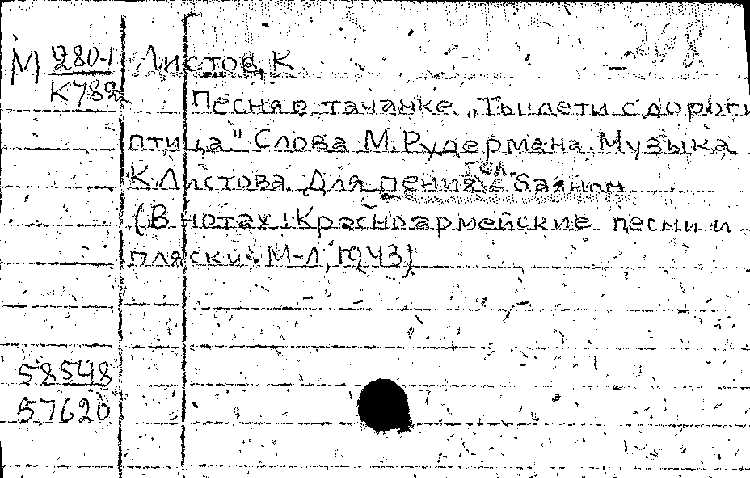 М 280-1 Листов, К.
К782
Песня о тачанке „Ты лети с дороги
птица" Слова М. Рудермана. Музыка
К. Листова. Для пения с баяном
(В нотах: Красноармейские песни и
пляски. М-Л, 1943)
58548
57620